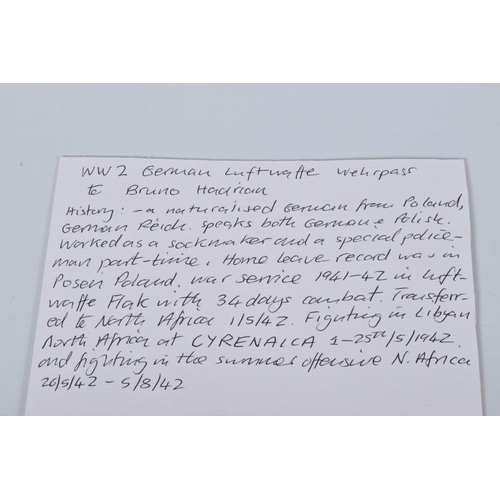 WW2 German Luftwaffe Wehrpass
to Bruno Hadrian
History: - a naturalised German from Poland,
German Reich. speaks both German & Polish.
Worked as a sockmaker and a special police-
man part-time. Home leave record was in
Posen Poland. War service 1941-42 in Luft-
waffe Flak with 34 days combat. Transferr-
ed to North Africa 1/5/42. Fighting in Libyan
North Africa at CYRENAICA 1-25th/5/1942.
and fighting in the summer offensive N. Africa
26/5/42 - 5/8/42